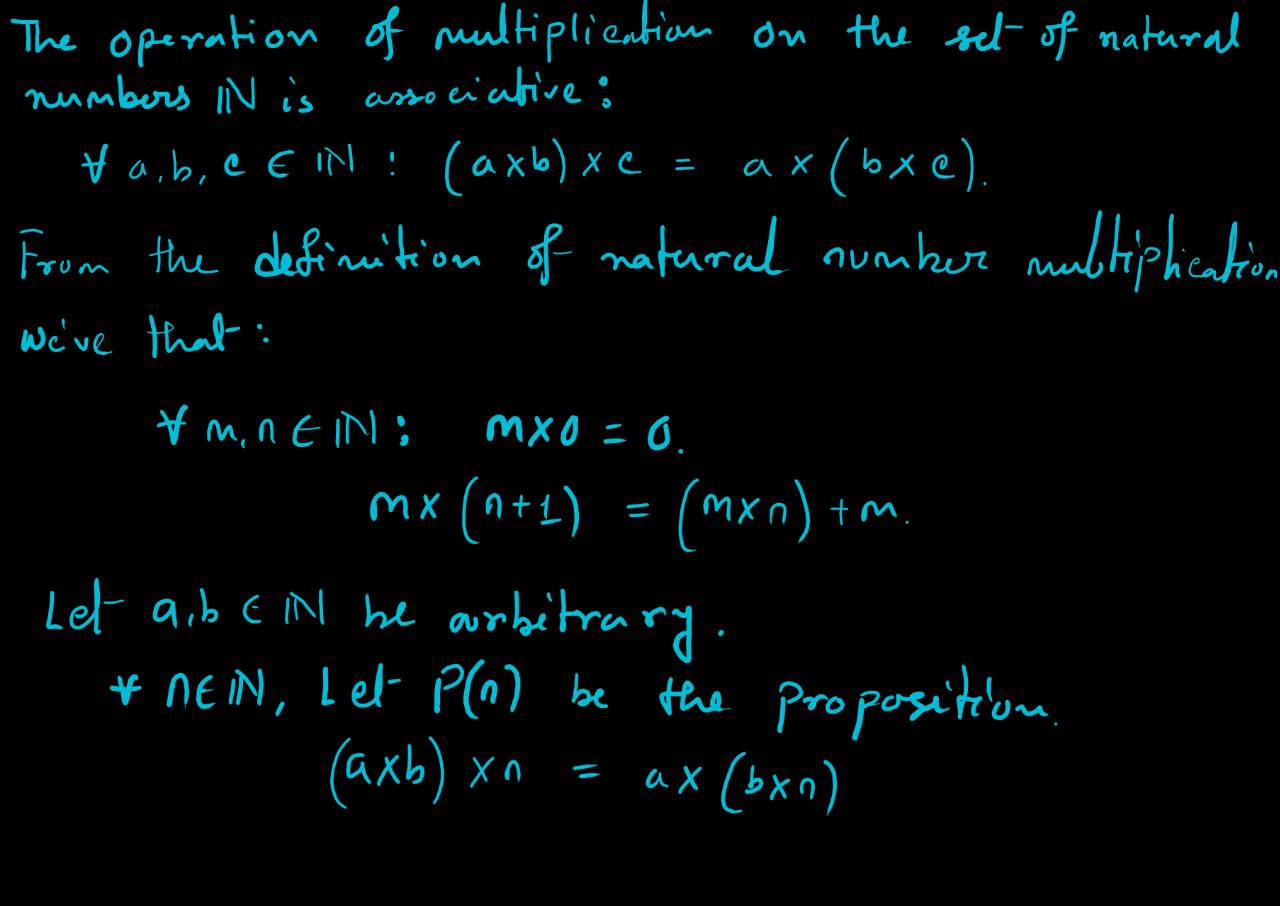 The operation of multiplication on the set of natural
numbers ℕ is associative:
∀ a, b, c ∈ ℕ : (a×b) × c = a × (b × c).
From the definition of natural number multiplication
we've that:
∀ m, n ∈ ℕ : m×0 = 0.
m× (n+1) = (m×n) + m.
Let a, b ∈ ℕ be arbitrary.
∀ n∈ℕ, Let P(n) be the proposition.
(a×b) ×n = a× (b×n)